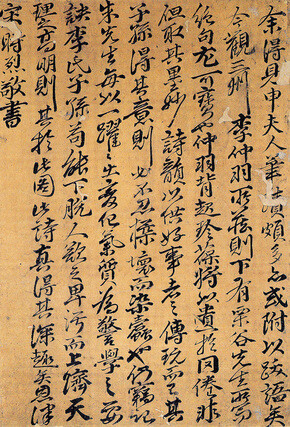 余得見申夫人筆蹟頗多也或附以跋語矣
今觀三州李仲羽所莊則下有栗谷先生所寫
絶句尤可寶也仲羽背以遺於同非
但取其畢妙詩韻以供好事者之傳玩而已其
子孫得其意則必不忍壞而染蠹也仍竊記
朱先生每以一躍躍出變化氣質爲警學之要
訣李氏子孫苟能下脫人欲之卑污而上濟天
理之高明則其於此圖此詩真得其深趣矣恩津
宋時烈敬書